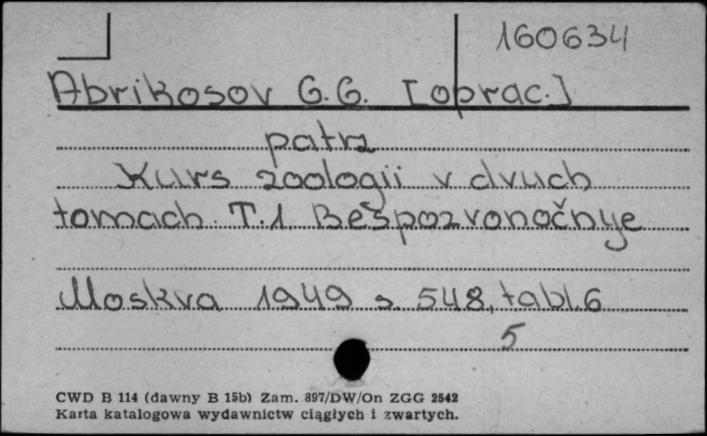 160634
Abrikosov G.G. [oprac.]
patrz
Kurs zoologii v dvuch
tomach. T.1 Bespozvonočnye
Moskva 1949 s. 548, tabl. 6
5
CWD B 114 (dawny B 15b) Zam. 897/DW/On ZGG 2542
Karta katalogowa wydawnictw ciągłych i zwartych.